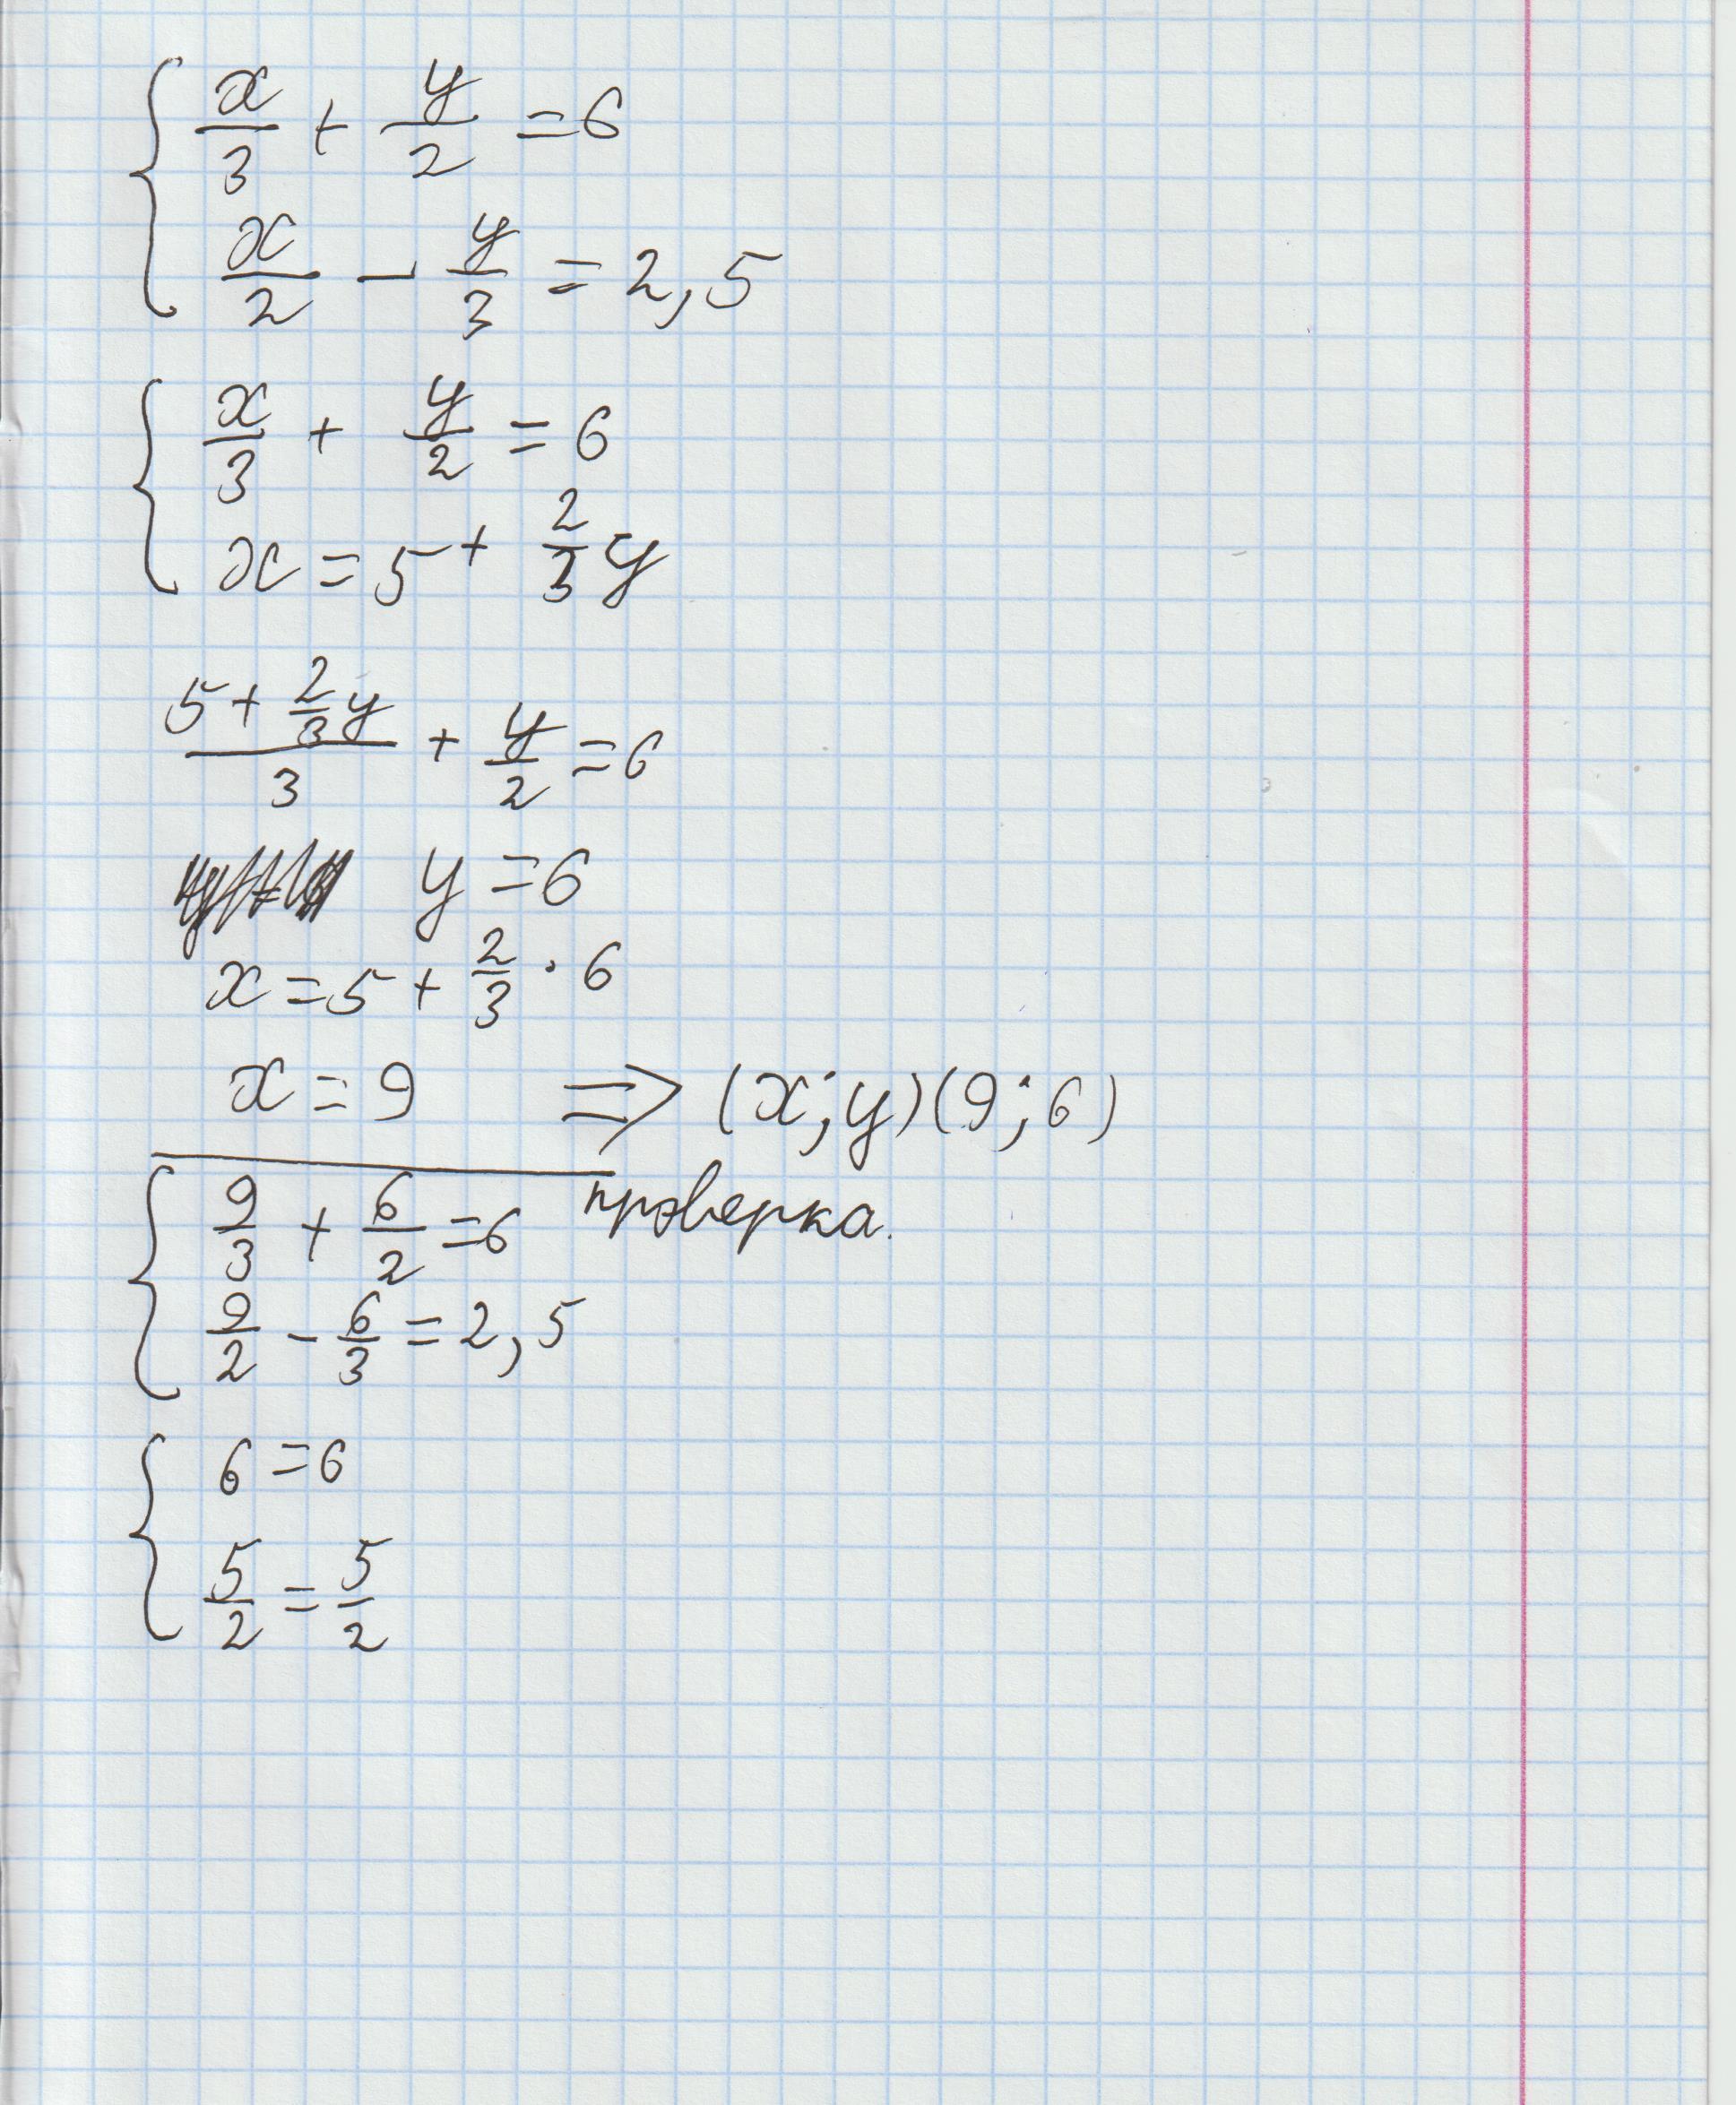 { x/3 + y/2 = 6
x/2 − y/3 = 2,5
{ x/3 + y/2 = 6
x = 5 + 2/3 y
(5 + 2/3 y)/3 + y/2 = 6
y = 6
x = 5 + 2/3 · 6
x = 9 ⇒ (x; y)(9; 6)
{ 9/3 + 6/2 = 6 проверка.
9/2 − 6/3 = 2,5
{ 6 = 6
5/2 = 5/2